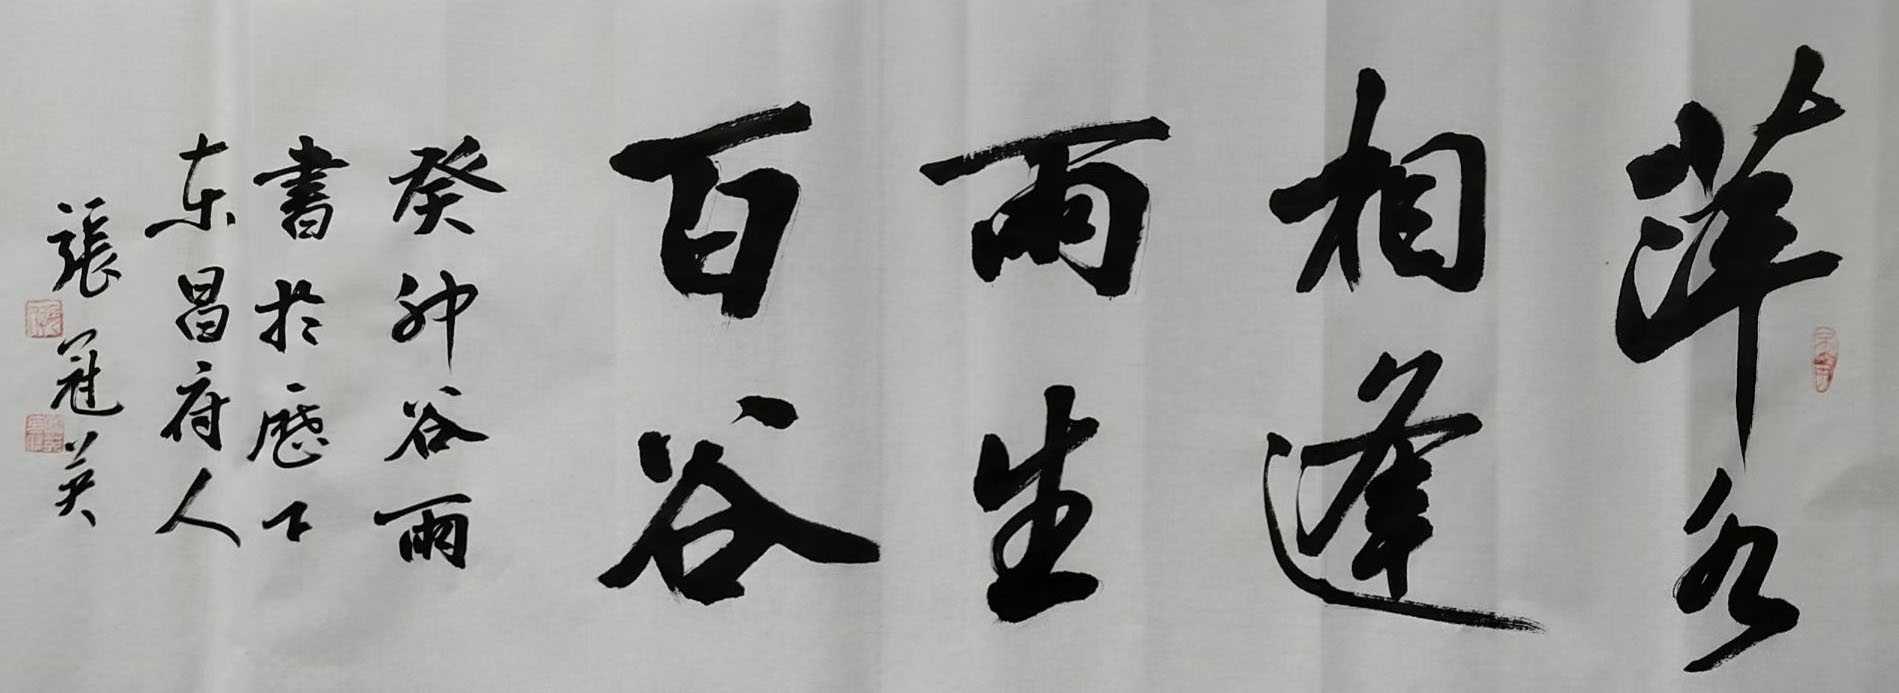 萍水
相逢
雨生
百谷
癸卯谷雨
書於歷下
东昌府人
張冠英